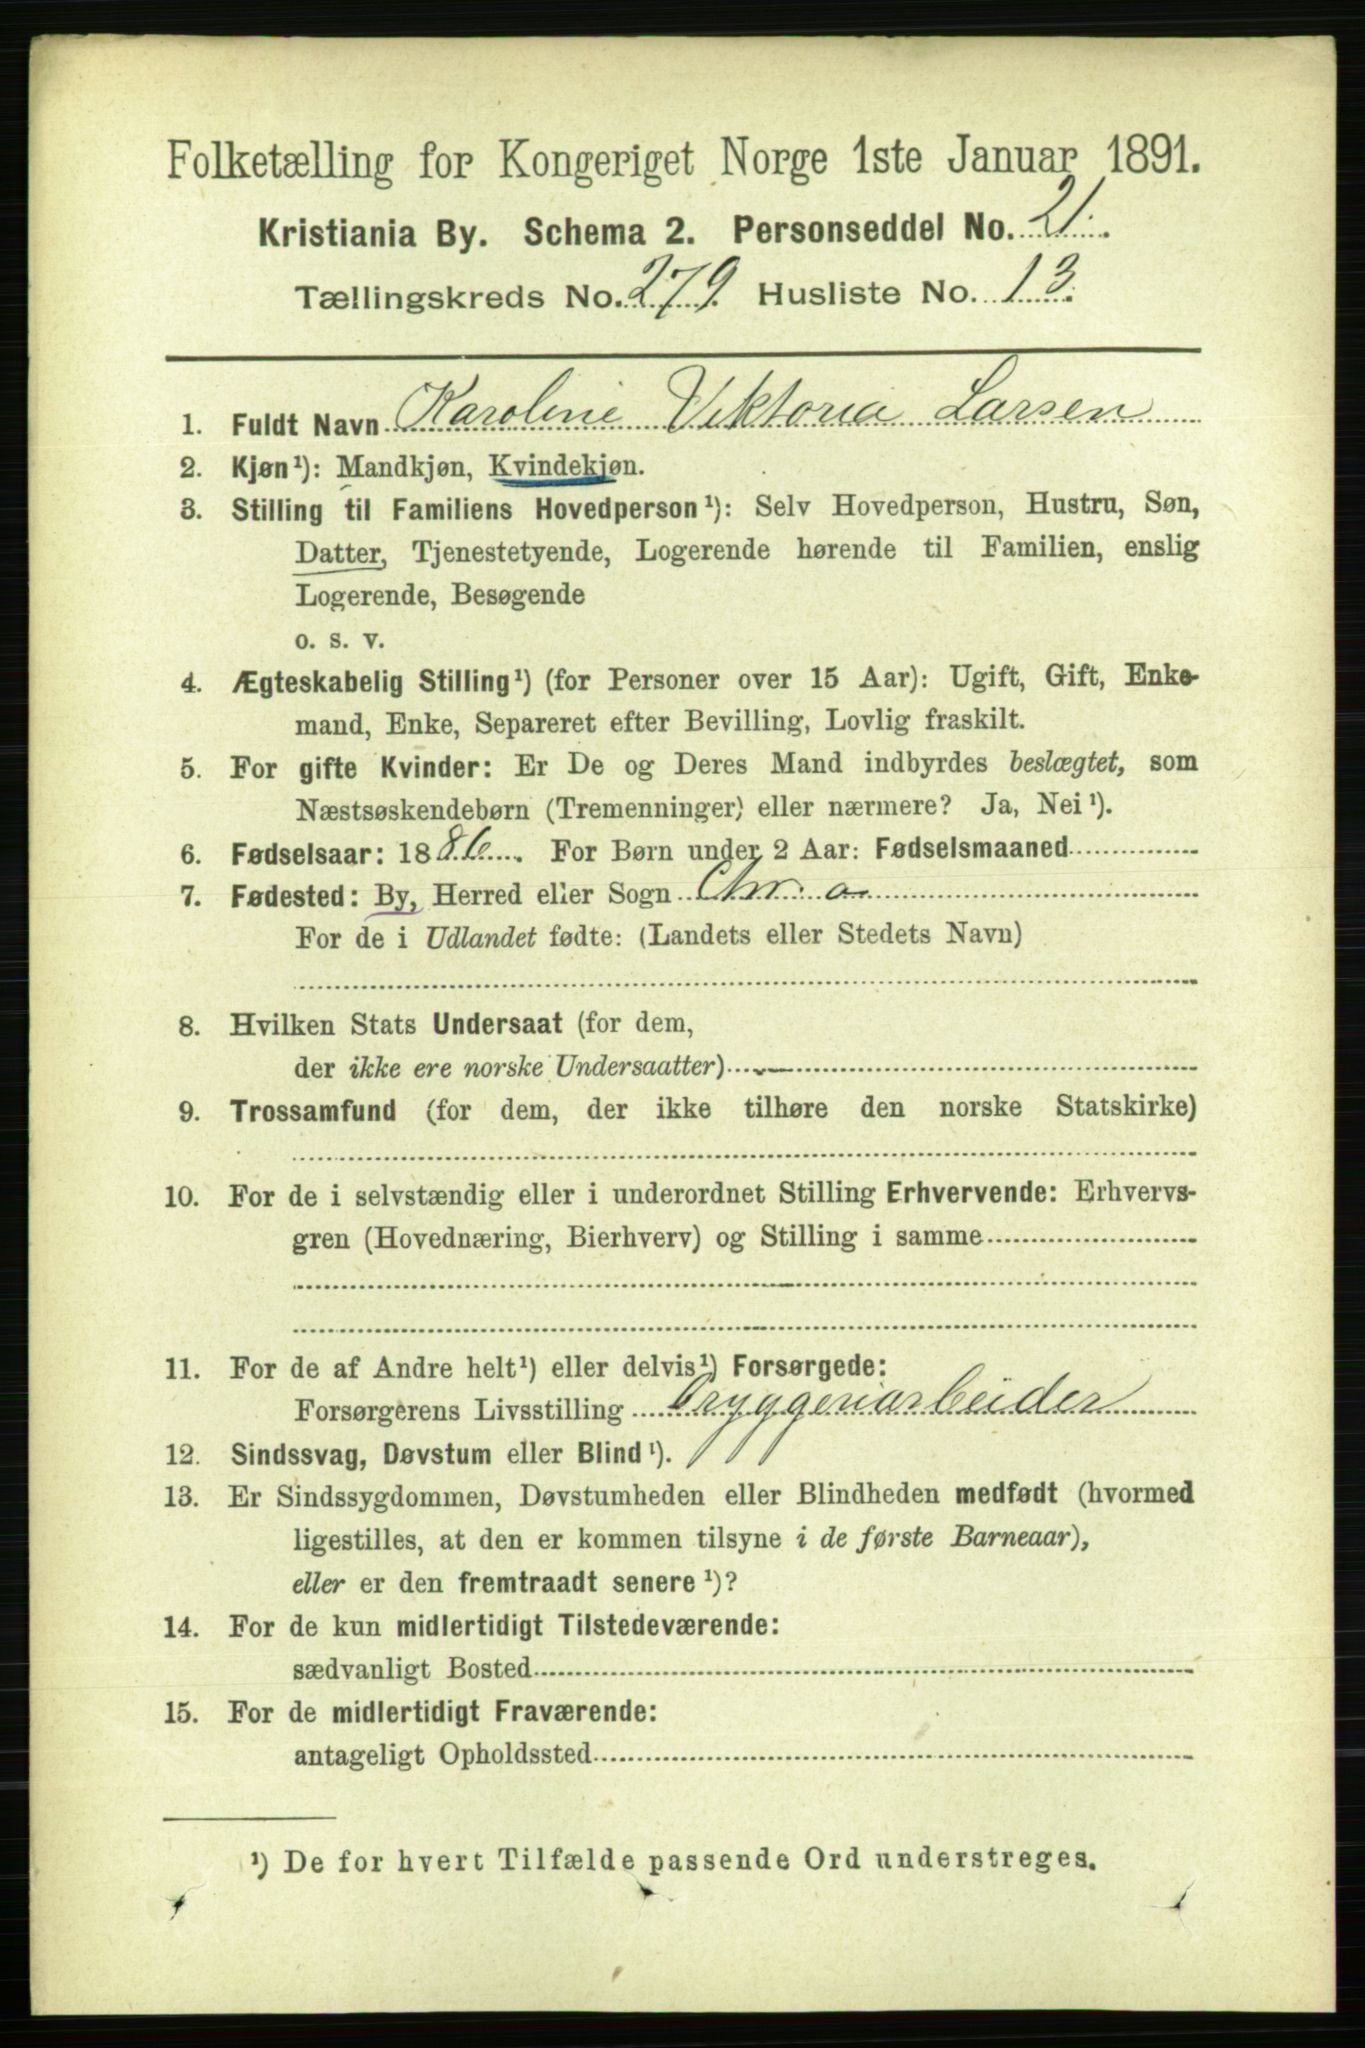 Folketælling for Kongeriget Norge 1ste Januar 1891.
Kristiania By. Schema 2. Personseddel No. 21.
Tællingskreds No. 279. Husliste No. 13.
1. Fuldt Navn Karoline Viktoria Larsen
2. Kjøn¹): Mandkjøn, Kvindekjøn.
3. Stilling til Familiens Hovedperson¹): Selv Hovedperson, Hustru, Søn,
Datter, Tjenestetyende, Logerende hørende til Familien, enslig
Logerende, Besøgende
o. s. v.
4. Ægteskabelig Stilling¹) (for Personer over 15 Aar): Ugift, Gift, Enke-
mand, Enke, Separeret efter Bevilling, Lovlig fraskilt.
5. For gifte Kvinder: Er De og Deres Mand indbyrdes beslægtet, som
Næstsøskendebørn (Tremenninger) eller nærmere? Ja, Nei¹).
6. Fødselsaar: 1886. For Børn under 2 Aar: Fødselsmaaned
7. Fødested: By, Herred eller Sogn Chr.a
For de i Udlandet fødte: (Landets eller Stedets Navn)
8. Hvilken Stats Undersaat (for dem,
der ikke ere norske Undersaatter)
9. Trossamfund (for dem, der ikke tilhøre den norske Statskirke)
10. For de i selvstændig eller i underordnet Stilling Erhvervende: Erhvervs-
gren (Hovednæring, Bierhverv) og Stilling i samme
11. For de af Andre helt¹) eller delvis¹) Forsørgede:
Forsørgerens Livsstilling Bryggeriarbeider
12. Sindssvag, Døvstum eller Blind¹).
13. Er Sindssygdommen, Døvstumheden eller Blindheden medfødt (hvormed
ligestilles, at den er kommen tilsyne i de første Barneaar),
eller er den fremtraadt senere¹)?
14. For de kun midlertidigt Tilstedeværende:
sædvanligt Bosted
15. For de midlertidigt Fraværende:
antageligt Opholdssted
¹) De for hvert Tilfælde passende Ord understreges.